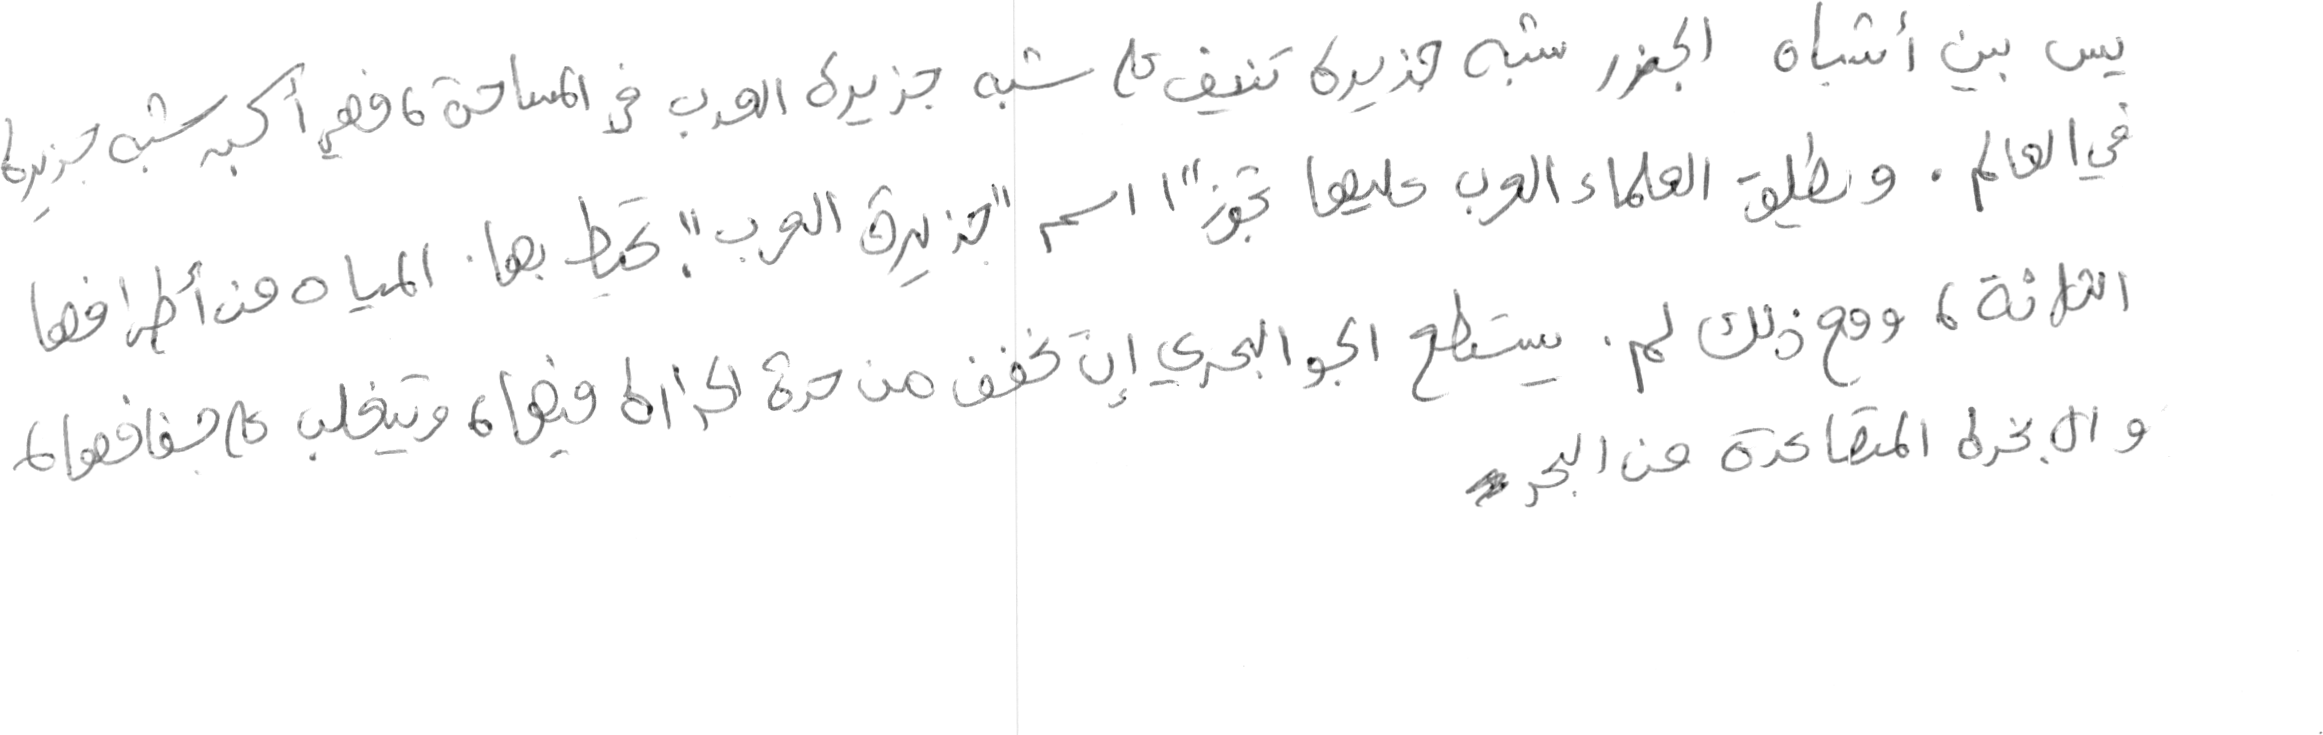 يس بين أشباه الجزر شبه جزيرة تنيف على شبه جزيرة العرب في المساحة، فهي أكبر شبه جزيرة
في العالم. ويطلق العلماء العرب عليها تجوزاً اسم "جزيرة العرب". تحيط بها. المياه من أطرافها
الثلاثة، ومع ذلك لم. يستطع الجو البحري إن تخفف من حدة الحرارة فيها، وتتغلب على جفافها،
والابخرة المتصاعدة من البحر